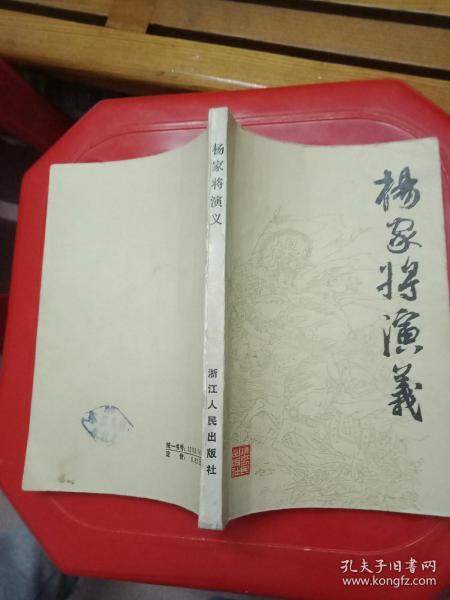 杨家将演义
浙江人民出版社
楊家将演義
浙江人民
出版社
统一书号：10103·
定价：0.
孔夫子旧书网
www.kongfz.com